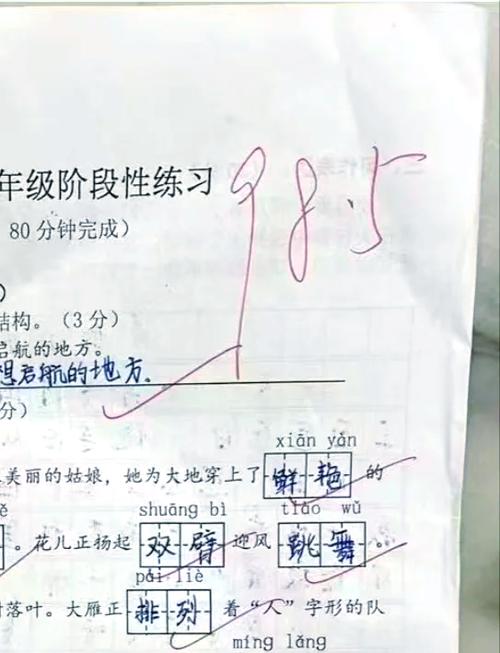 年级阶段性练习
98.5
80分钟完成）
）
结构。（3分）
启航的地方。
想启航的地方.
分）
xiān yàn
美丽的姑娘，她为大地穿上了鲜艳的
shuāng bì tiào wǔ
。花儿正扬起双臂迎风跳舞。
pái liè
落叶。大雁正排列着“人”字形的队
míng lǎng